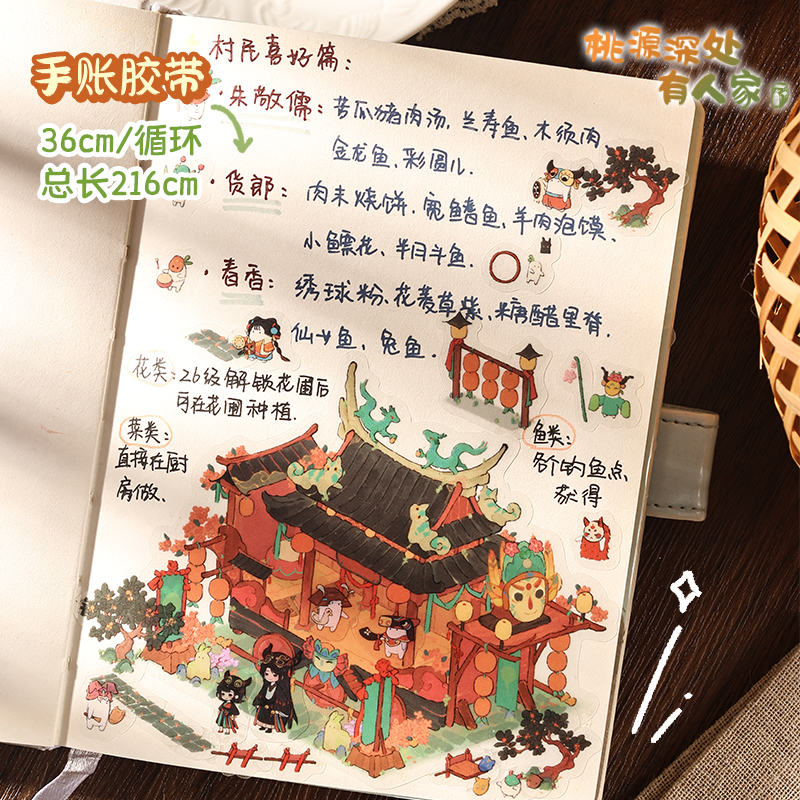 手账胶带
36cm/循环
总长216cm
桃源深处
有人家
村民喜好篇：
·朱敬儒：苦瓜猪肉汤，兰寿鱼、木须肉
金龙鱼，彩圆儿．
·货郎：肉末烧饼．宽鳍鱲鱼、羊肉泡馍、
小鳔花、半月斗鱼．
·春香：绣球粉、花菱草紫、糖醋里脊．
仙女鱼、兔鱼．
花类：26级解锁花圃后
可在花圃种植．
菜类：
直接在厨
房做．
鱼类：
各个的鱼点
获得